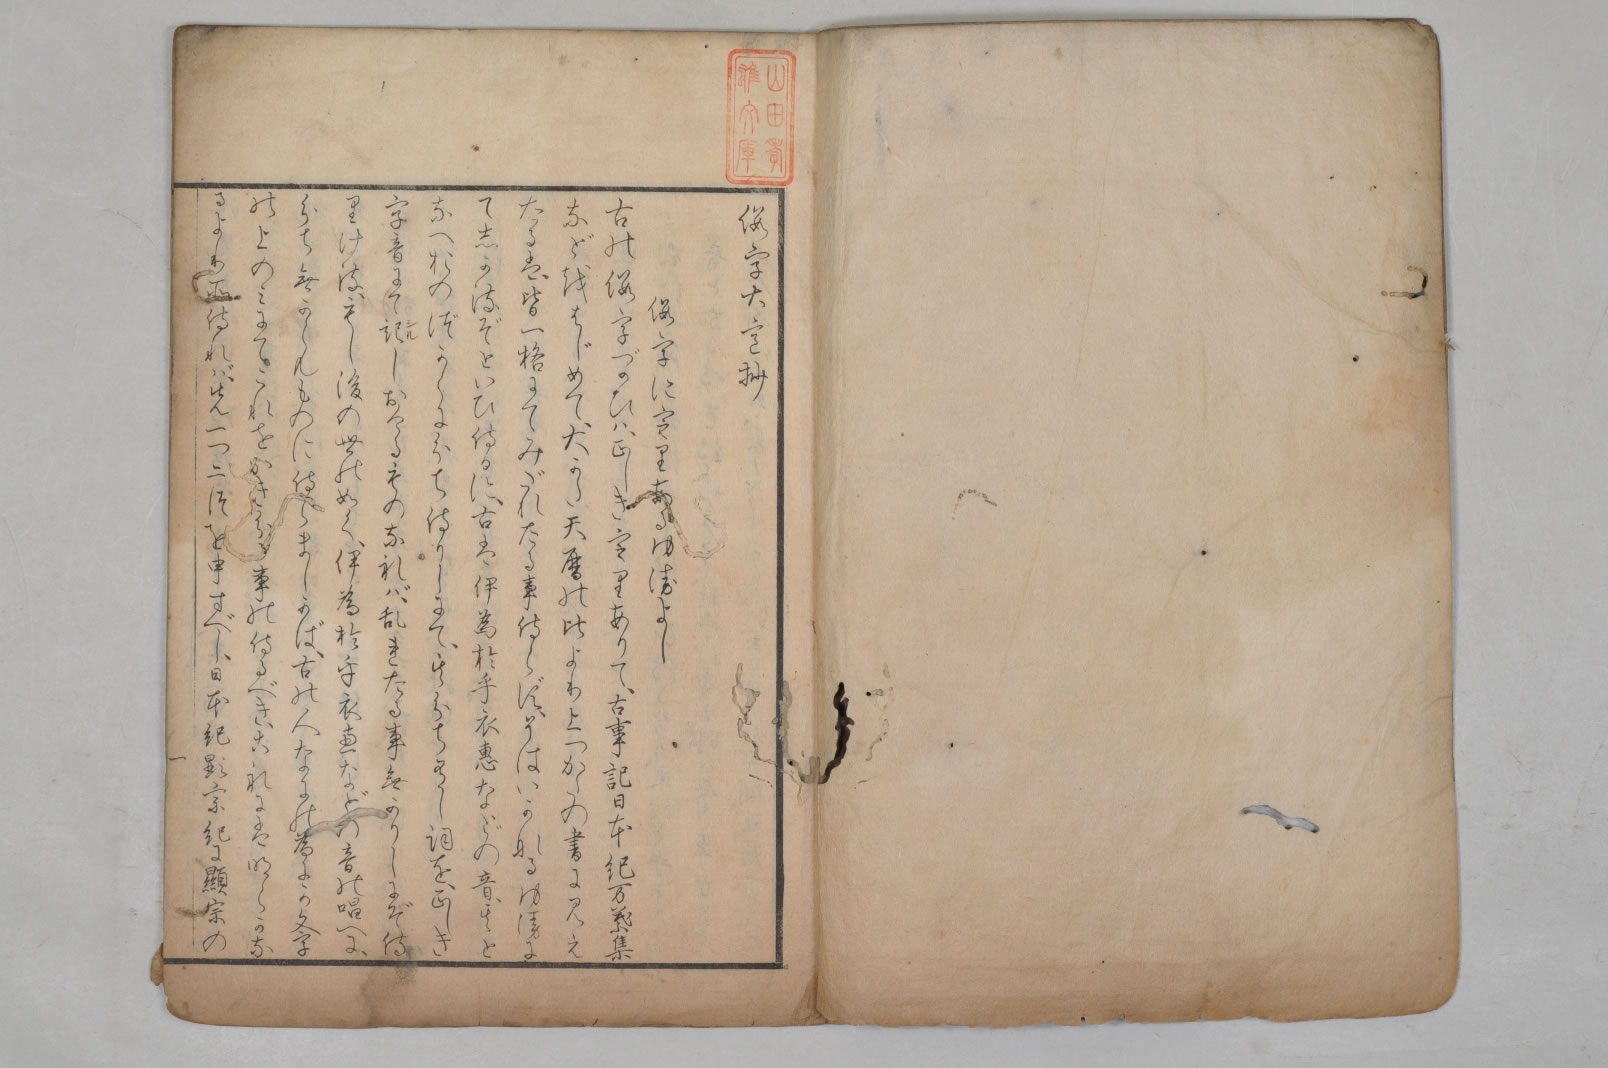 山田孝
雄文庫
仮字大意抄
仮字に定里あるゆゑよし
古の仮字づかひは正しき定里ありて、古事記日本紀万葉集
などをはじめて、大かた天暦の比より上つかたの書に見え
たるは、皆一格にてみだれたる事侍らず、そはいかなるゆゑに
て志かるぞといひ侍るに、古は伊為於乎衣恵などの音、もと
なへおのづからにわかち侍りしにて、其わかち有し詞を、正しき
字音にて記しおけるものなれば、乱れたる事無かりしにぞ侍
里ける、もし後の世の如く、伊為於乎衣恵などの音の唱へに、
わかち無からんものに侍らましかば、古の人なにの為にか文字
の上のみにて、これをかきわかつ事の侍るべき、これには明らかな
るより所侍れば、先一つ二つを申すべし、日本紀顕宗紀に顕宗の
一